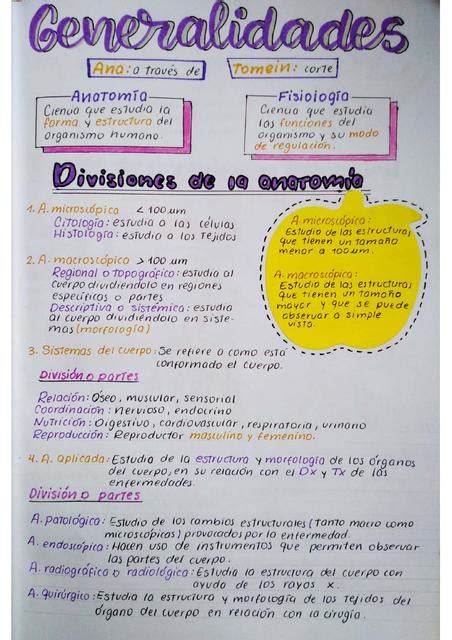 Generalidades
Ana: a través de Tomein: corte
Anatomía
Ciencia que estudia la
forma y estructura del
organismo humano.
Fisiología
Ciencia que estudia
las funciones del
organismo y su modo
de regulación.
Divisiones de la anatomía
1. A. microscópica < 100 um
Citología: estudia a las células
Histología: estudia a los tejidos
2. A. macroscópica > 100 um
Regional o topográfico: estudia al
cuerpo dividiéndolo en regiones
específicas o partes
Descriptiva o sistémica: estudia
al cuerpo dividiéndolo en siste-
mas (morfología)
A. microscópica:
Estudia de las estructuras
que tienen un tamaño
menor a 100um.
A. macroscópica:
Estudia de las estructuras
que tienen un tamaño
mayor y que se puede
observar a simple
vista.
3. Sistemas del cuerpo: Se refiere a como está
conformado el cuerpo.
División o partes
Relación: Óseo, muscular, sensorial
Coordinación: nervioso, endocrino
Nutrición: Digestivo, cardiovascular, respiratorio, urinario
Reproducción: Reproductor masculino y femenino.
4. A. aplicada: Estudia de la estructura y morfología de los órganos
del cuerpo, en su relación con el Dx y Tx de las
enfermedades.
División o partes
A. patológica: Estudio de los cambios estructurales (tanto macro como
microscópicas) provocados por la enfermedad.
A. endoscópica: Hacen uso de instrumentos que permiten observar
las partes del cuerpo.
A. radiográfica o radiológica: Estudia la estructura del cuerpo con
ayuda de los rayos x.
A. quirúrgica: Estudia la estructura y morfología de los tejidos del
órgano del cuerpo en relación con la cirugía.